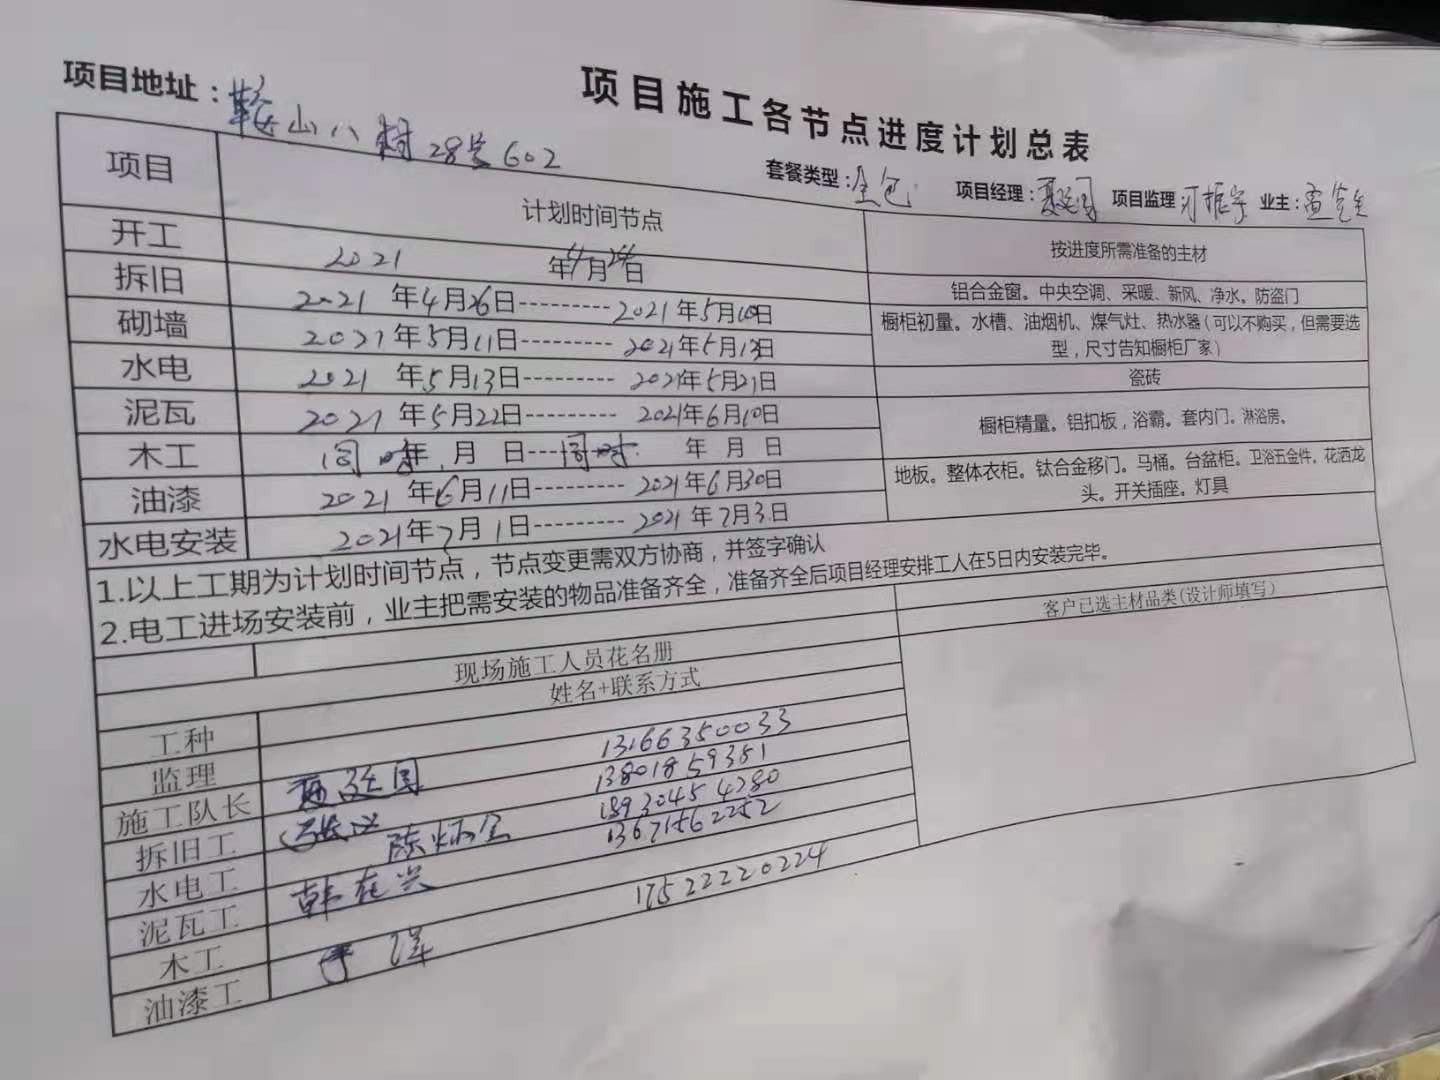 项目施工各节点进度计划总表
项目地址：鞍山八村28号602
套餐类型：全包 项目经理：夏廷国 项目监理 业主：孟先生
项目 计划时间节点 按进度所需准备的主材
开工 2021 年4月24日
铝合金窗。中央空调、采暖、新风、净水。防盗门
拆旧 2021 年4月26日---------2021年5月10日
橱柜初量。水槽、油烟机、煤气灶、热水器(可以不购买，但需要选
型，尺寸告知橱柜厂家)
砌墙 2021 年5月11日--------- 2021年5月13日
水电 2021 年5月13日--------- 2021年5月21日
瓷砖
泥瓦 2021 年5月22日--------- 2021年6月10日
橱柜精量。铝扣板，浴霸。套内门。淋浴房。
木工 同时年 月 日---同时 年 月 日
油漆 2021 年6月11日--------- 2021年6月30日
地板。整体衣柜。钛合金移门。马桶。台盆柜。卫浴五金件。花洒龙
头。开关插座。灯具
水电安装 2021年7月1日--------- 2021年7月3日
1.以上工期为计划时间节点，节点变更需双方协商，并签字确认
2.电工进场安装前，业主把需安装的物品准备齐全，准备齐全后项目经理安排工人在5日内安装完毕。
现场施工人员花名册 客户已选主材品类(设计师填写)
姓名+联系方式
工种
监理 13166350033
施工队长 夏廷国 13801859351
拆旧工 18930454280
水电工 陈炳全 13671562252
泥瓦工 韩在兴
木工 17522220224
油漆工